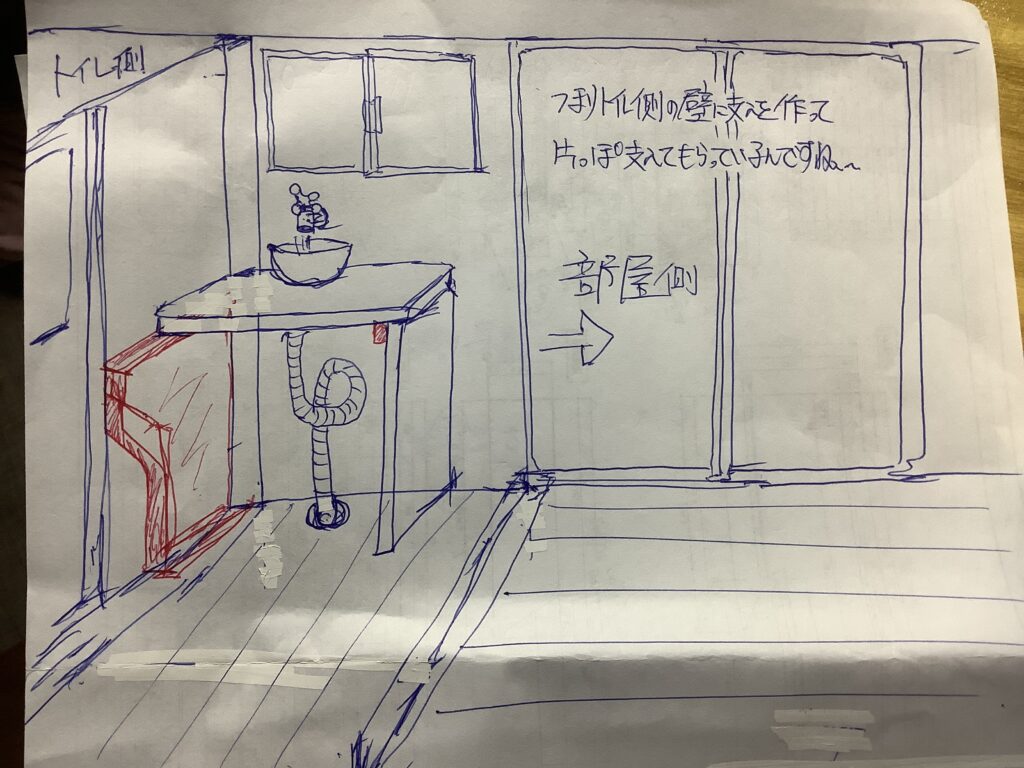 トイレ側
つまりトイレ側の壁に支えを作って
片っぽ支えてもらっているんですね〜
部屋側